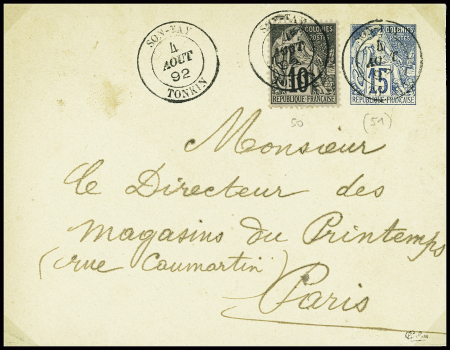 SON-TAY
4
AOUT
92
TONKIN
SON-TAY
4
COLONIES
POSTES
10
REPUBLIQUE FRANÇAISE
4
COLONIES
15
REPUBLIQUE FRANÇAISE
50
(51)
Monsieur
le Directeur des
magasins du Printemps
(rue Caumartin)
Paris